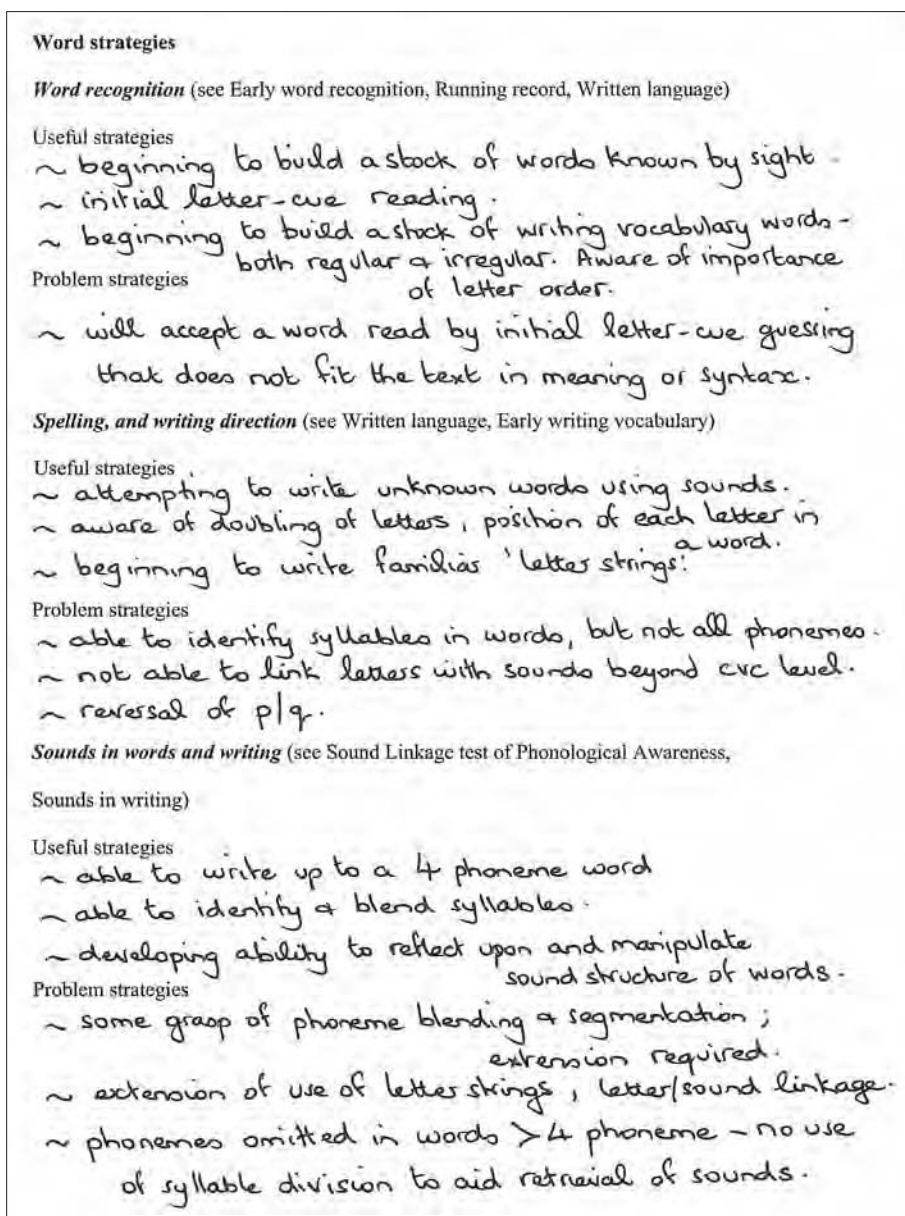 Word strategies
Word recognition (see Early word recognition, Running record, Written language)
Useful strategies
~ beginning to build a stock of words known by sight.
~ initial letter-cue reading.
~ beginning to build a stock of writing vocabulary words -
both regular & irregular. Aware of importance
of letter order.
Problem strategies
~ will accept a word read by initial letter-cue guessing
that does not fit the text in meaning or syntax.
Spelling, and writing direction (see Written language, Early writing vocabulary)
Useful strategies
~ attempting to write unknown words using sounds.
~ aware of doubling of letters, position of each letter in
a word.
~ beginning to write familiar 'letter strings'.
Problem strategies
~ able to identify syllables in words, but not all phonemes.
~ not able to link letters with sounds beyond cvc level.
~ reversal of p/q.
Sounds in words and writing (see Sound Linkage test of Phonological Awareness,
Sounds in writing)
Useful strategies
~ able to write up to a 4 phoneme word
~ able to identify & blend syllables.
~ developing ability to reflect upon and manipulate
sound structure of words.
Problem strategies
~ some grasp of phoneme blending & segmentation;
extension required.
~ extension of use of letter strings, letter/sound linkage.
~ phonemes omitted in words >4 phoneme - no use
of syllable division to aid retrieval of sounds.